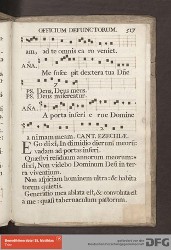 OFFICIUM DEFUNCTORUM.
am, ad te omnis ca ro veniet.
Me suscepit dextera tua Dñe
PS. Deus, Deus meus.
PS. Deus misereatur.
A porta inferi erue Domine
animam meam. CANT. EZECHIÆ.
EGo dixi, In dimidio dierum meorū:
vadam ad portas inferi.
Quæsivi residuum annorum meorum:
dixi, Non videbo Dominum Deū in ter-
ra viventium.
Non aspiciam hominem ultra: & habita
torem quietis.
Generatio mea ablata est, & convoluta est
a me: quasi tabernaculum pastorum.
DFG